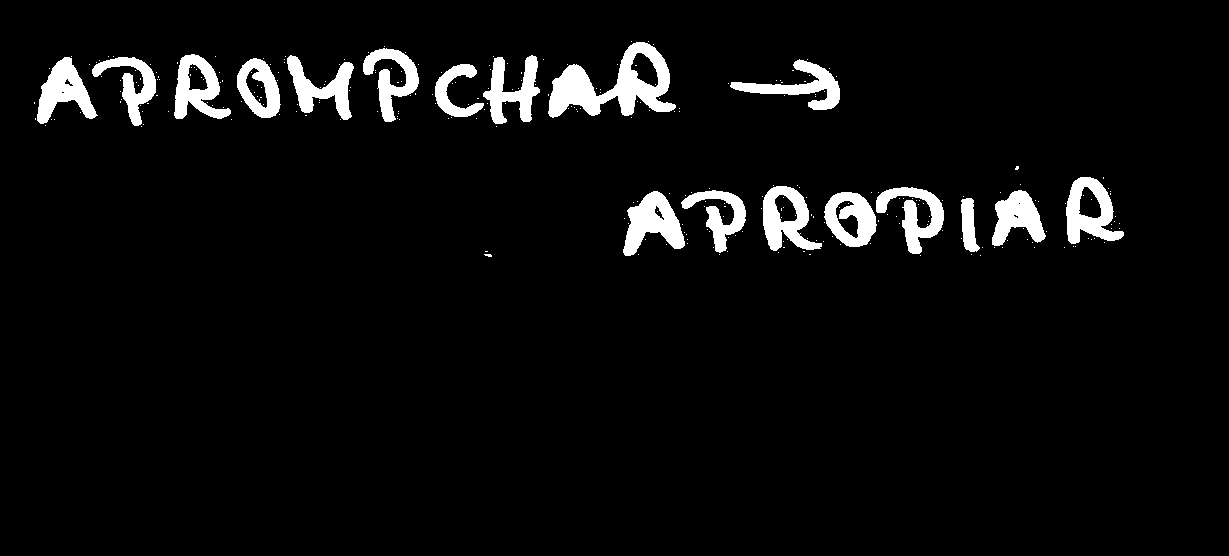 APROMPCHAR →
APROPIAR